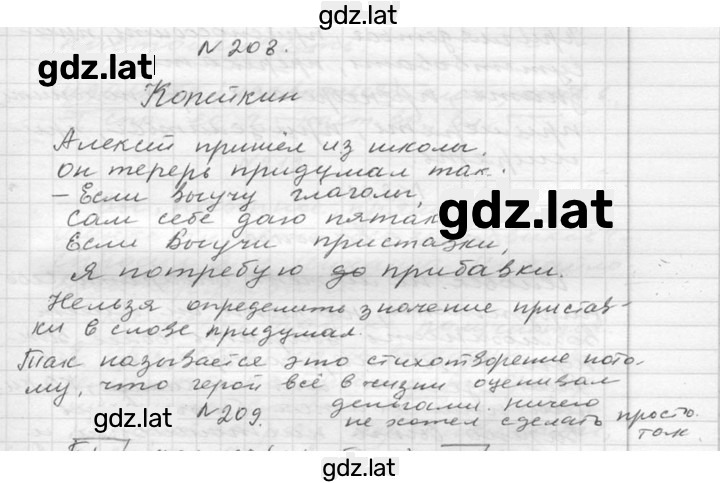 gdz.lat
N 208.
gdz.lat
Копейкин
Алексей пришёл из школы,
он теперь придумал так:
- Если выучу глаголы,
Сам себе даю пятак
gdz.lat
Если Выучи приставки,
Я потребую до прибавки.
Нельзя определить значение пристав-
ки в слове придумал.
Так называется это стихотворение пото-
му, что герой всё в жизни оценивал
деньгами. ничего
не хотел сделать просто
так.
gdz.lat
N 209.
gdz.lat